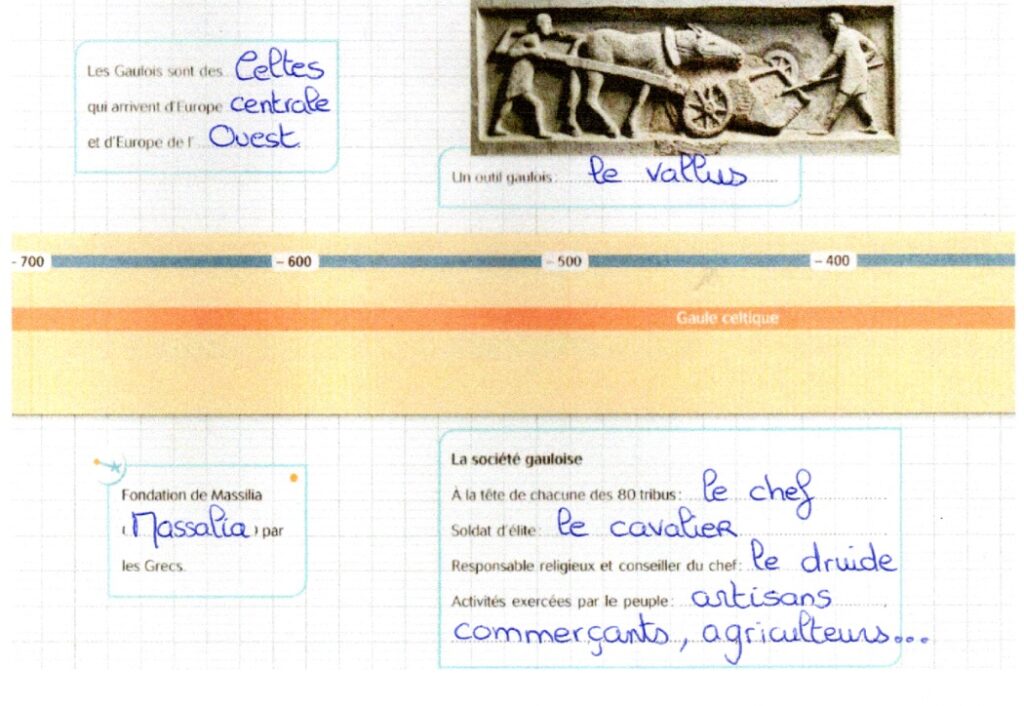 Les Gaulois sont des Celtes
qui arrivent d'Europe centrale
et d'Europe de l' Ouest.
Un outil gaulois : le vallus
- 700
- 600
- 500
- 400
Gaule celtique
Fondation de Massilia
(Massalia) par
les Grecs.
La société gauloise
À la tête de chacune des 80 tribus : le chef
Soldat d'élite : le cavalier
Responsable religieux et conseiller du chef : le druide
Activités exercées par le peuple : artisans,
commerçants, agriculteurs...